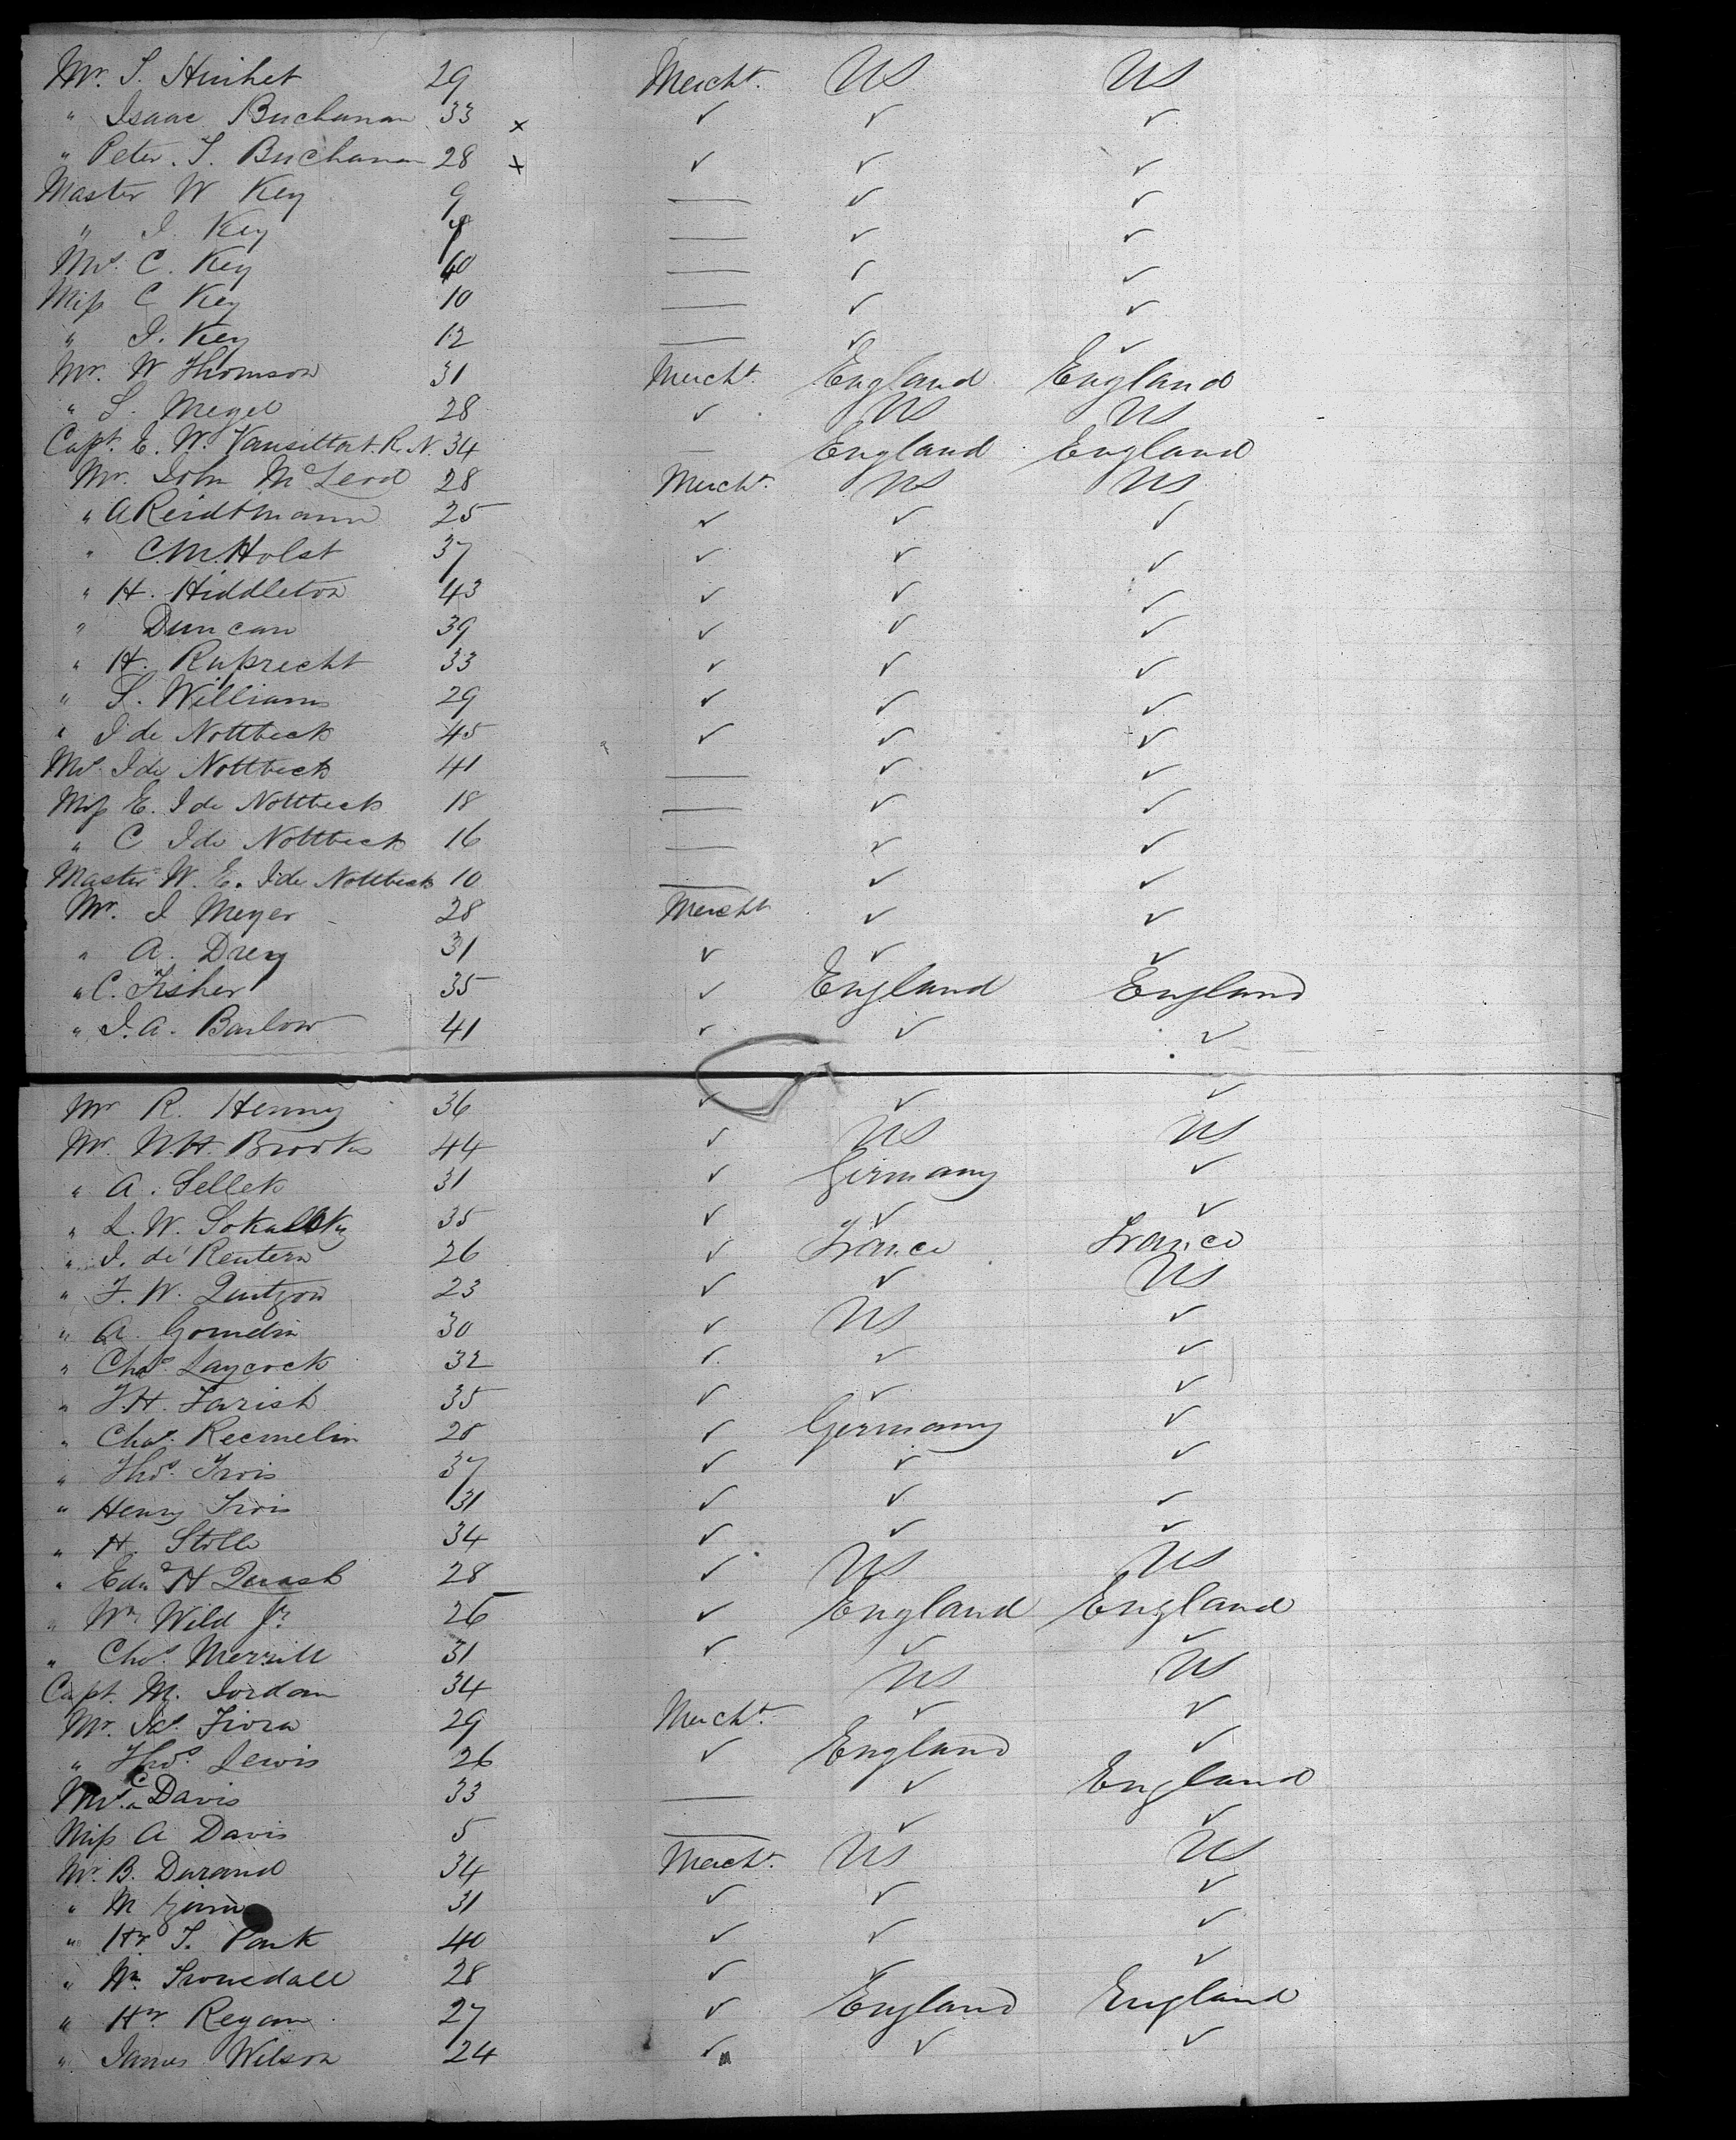 Mr. S. Huihet 29 Mercht. US US
" Isaac Buchanan 33 x ✓ ✓ ✓
" Peter. S. Buchanan 28 x ✓ ✓ ✓
Master W Key 9 — ✓ ✓
" I. Key — ✓ ✓
Mrs. C. Key 40 — ✓ ✓
Miss C Key 10 — ✓ ✓
" I. Key 12 — ✓ ✓
Mr. W Thomson 31 Mercht. England England
" S. Megel 28 ✓ US US
Capt. E. W. Vansittart. R. N. 34 — England England
Mr. John McLeod 28 Mercht. US US
" A Reidtmann 25 ✓ ✓ ✓
" C. M. Holst 37 ✓ ✓ ✓
" H. Hiddleton 43 ✓ ✓ ✓
" Duncan 39 ✓ ✓ ✓
" H. Ruprecht 33 ✓ ✓ ✓
" S. Williams 29 ✓ ✓ ✓
" I de Nottbeck 45 ✓ ✓ ✓
Mrs. I de Nottbeck 41 — ✓ ✓
Miss E. I de Nottbeck 18 — ✓ ✓
" C I de Nottbeck 16 — ✓ ✓
Master W. E. I de Nottbeck 10 — ✓ ✓
Mr. I Meyer 28 Mercht ✓ ✓
" A. Drey 31 ✓ ✓ ✓
" C. Fisher 35 ✓ England England
" I. A. Barlow 41 ✓ ✓ ✓
Mr R. Henny 36 ✓ ✓ ✓
Mr. W. H. Brooks 44 ✓ US US
" A. Sellek 31 ✓ Germany ✓
" L. W. 35 ✓ ✓ ✓
" I. de Reutern 26 ✓ France France
" F. W. 23 ✓ ✓ US
" A. 30 ✓ US ✓
" Chas. Laycock 32 ✓ ✓ ✓
" F. H. Farish 35 ✓ ✓ ✓
" Chas. Reemelin 28 ✓ Germany ✓
" Thos. Irois 37 ✓ ✓ ✓
" Henry Irois 31 ✓ ✓ ✓
" H. Stolle 34 ✓ ✓ ✓
" Edw H 28 ✓ US US
" Wm Wild Jr. 26 ✓ England England
" Chas. Merrill 31 ✓ ✓ ✓
Capt. M. Jordan 34 US US
Mr. Jas. Fiora 29 Mercht. ✓ ✓
" Thos. Lewis 26 ✓ England ✓
Mrs. C Davis 33 — ✓ England
Miss A Davis 5 — ✓ ✓
Mr. B. Durand 34 Mercht. US US
" M 31 ✓ ✓ ✓
" Hy S. Park 40 ✓ ✓ ✓
" Wm. Trousdall 28 ✓ ✓ ✓
" Hy Regan 27 ✓ England England
" James Wilson 24 ✓ ✓ ✓